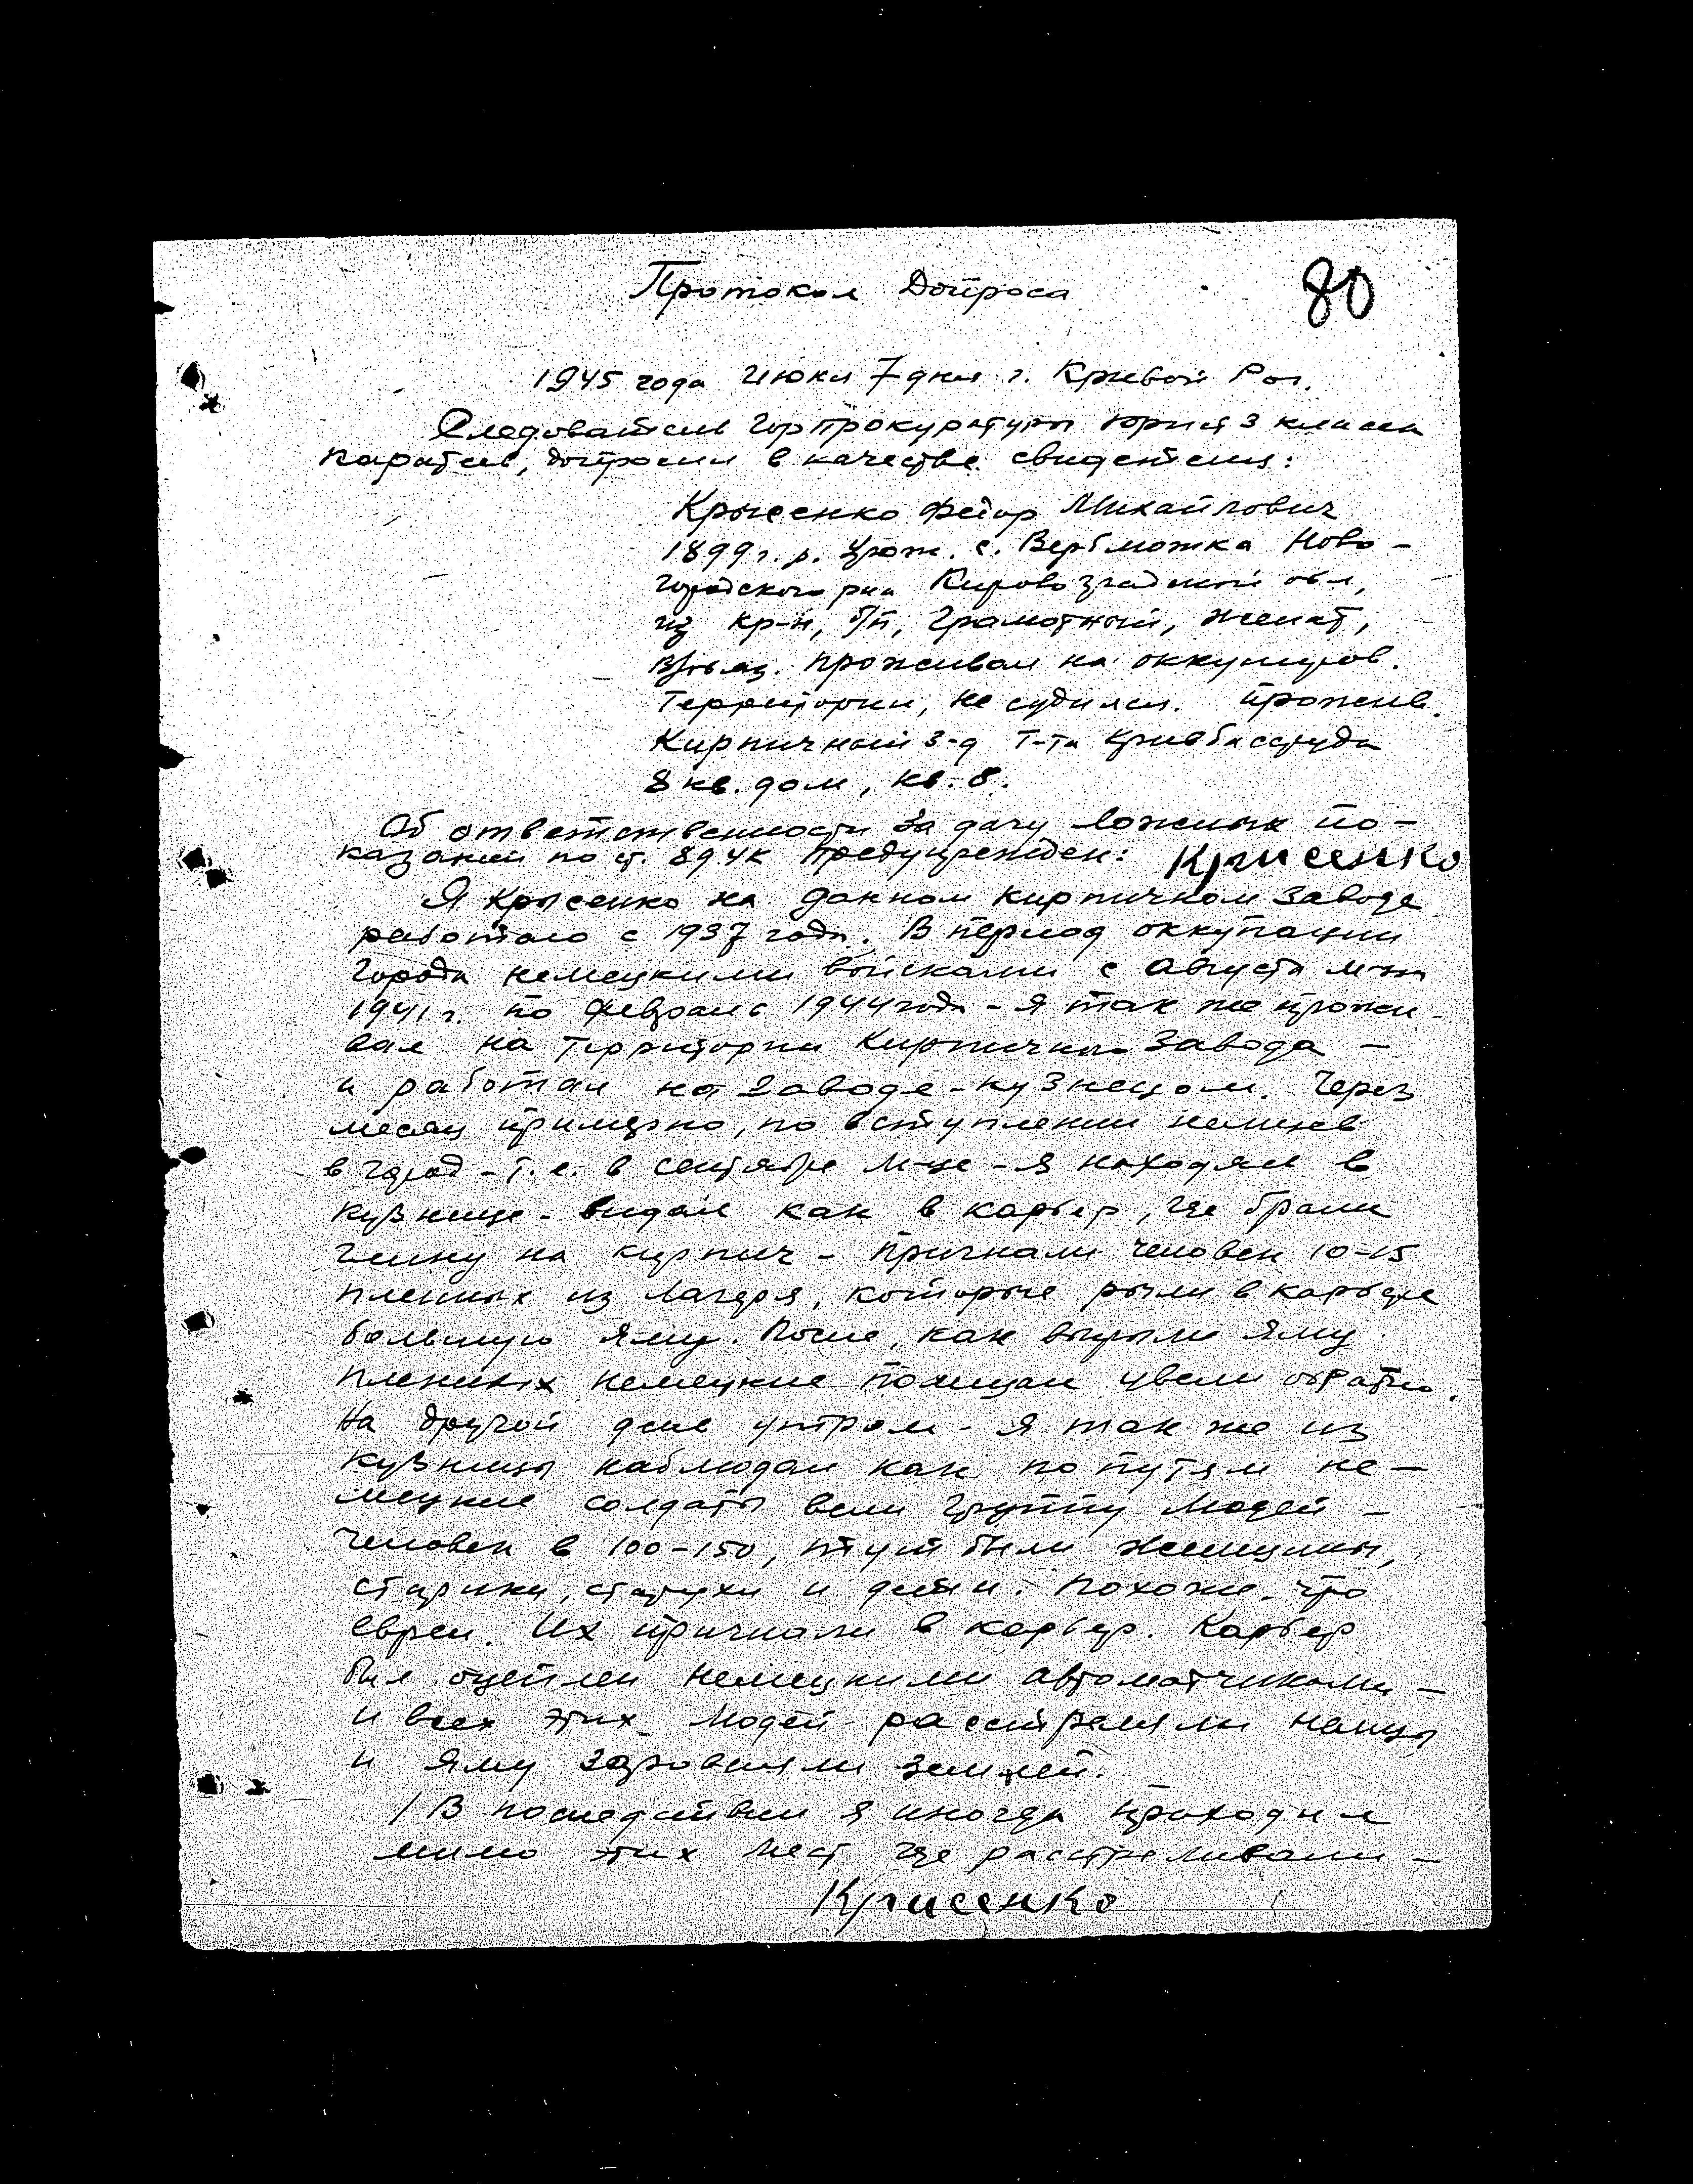 80
Протокол Допроса
1945 года Июня 7 дня г. Кривой Рог.
Следователь Горпрокуратуры юрист 3 класса
допросил в качестве свидетеля:
Крысенко Федор Михайлович
1899 г. р. урож. с. Верблюжка Ново-
городского р-на Кировоградской обл,
из кр-н, б/п, грамотный, женат,
проживал на оккупиров.
территории, не судился. прожив.
Кирпичный з-д т-та Кривбассруда
8 кв. дом, кв. 8.
Об ответственности за дачу ложных по-
казаний по ст. 89 УК предупрежден: Крисенко
Я Крысенко на данном кирпичном заводе
работаю с 1937 года. В период оккупации
города немецкими войсками с августа м-ца
1941 г. по февраль 1944 года - я так же прожи-
вал на территории Кирпичного завода -
и работал на заводе - кузнецом. Через
месяц примерно, по вступлении немцев
в город - т. е. в сентябре м-це - я находясь в
кузнице - видал как в карьер, где брали
глину на кирпич - пригнали человек 10-15
пленных из лагеря, которые рыли в карьере
большую яму. После, как вырыли яму
пленных немецкие полицаи увели обратно.
На другой день утром - я так же из
кузницы наблюдал как по путям не-
мецкие солдаты вели группу людей -
человек в 100-150, тут были женщины,
старики, старухи и дети. Похоже - что
евреи. Их пригнали в карьер. Карьер
был оцеплен немецкими автоматчиками -
и всех этих людей расстреляли немцы
и яму заровняли землей.
/ В последствии я иногда приходил
мимо этих мест где расстреливали -
Крисенко